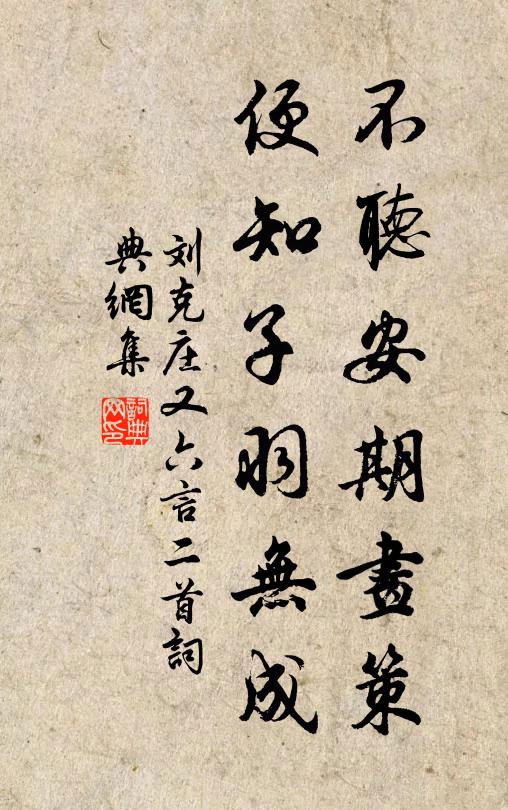 不聽安期畫策
便知子羽無成
刘克庄又六言二首詞
典網集
詞典
网印